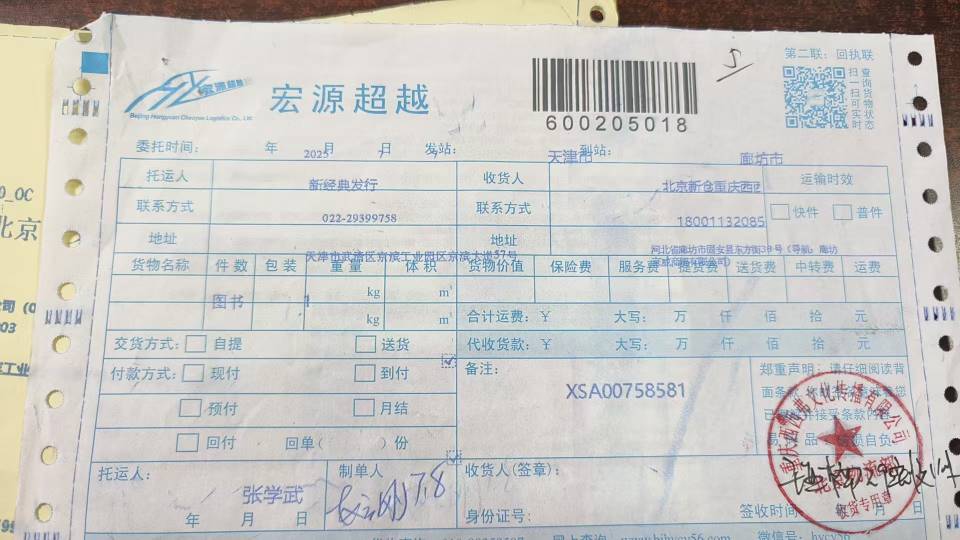 第二联：回执联
宏源超越
宏源超越
Beijing Hongyuan Chaoyue Logistics Co., Ltd.
600205018
扫一扫可
查询货物状态
委托时间： 年 2025 月 7 日 发站： 天津市 到站： 廊坊市
托运人 新经典发行 收货人 北京新仓重庆西 运输时效
联系方式 022-29399758 联系方式 18001132085 快件 普件
地址 天津市武清区京滨工业园区京滨大道57号 地址 河北省廊坊市固安县东方街30号（导航：廊坊
货物名称 件数 包装 重量 体积 货物价值 保险费 服务费 提货费 送货费 中转费 运费
图书 1 kg m³
kg m³ 合计运费：¥ 大写： 万 仟 佰 拾 元
交货方式： 自提 送货 代收货款：¥ 大写： 万 仟 佰 拾 元
付款方式： 现付 到付 备注： 郑重声明：请仔细阅读背
面条款
XSA00758581
预付 月结
回付 回单( )份
托运人： 制单人 收货人(签章)：
张学武 7.8
年 月 日 身份证号： 签收时间： 年 月 日
重庆西西弗文化传播有限公司
收货专用章